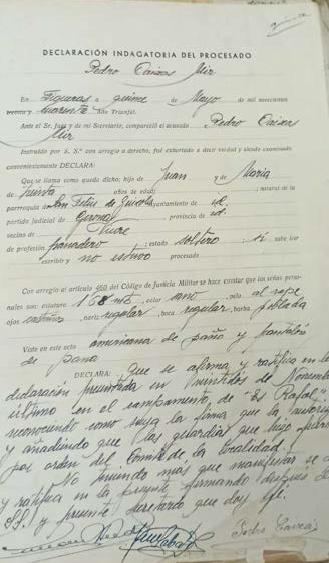 DECLARACIÓN INDAGATORIA DEL PROCESADO
Pedro Mir
En Figueras a quince de Mayo de mil novecientos
cuarenta Año Triunfal.
Ante el Sr. Juez y de mi Secretario, compareció el acusado Pedro
Mir
Instruido por S. S.ª con arreglo a derecho, fué exhortado a decir verdad y siendo examinado
convenientemente DECLARA:
Que se llama como queda dicho; hijo de Juan y de María
de treinta años de edad; natural de la
parroquia de San Feliu de Guixols Ayuntamiento de id.
partido judicial de Gerona provincia de id.
vecino de
de profesión panadero; estado soltero; si sabe leer
escribir y no estuvo procesado
Con arreglo al artículo 460 del Código de Justicia Militar se hace constar que las señas perso-
nales son: estatura 1'68 mts color sano pelo al rape
ojos castaños nariz regular boca regular barba poblada
Viste en este acto americana de paño y pantalón
de pana
DECLARA: Que se afirma y ratifica en la
declaración prestada en de
último en el campamento de "El
reconociendo como suya la firma que la autoriza
y añadiendo que las guardias que hizo
por orden del Comité de la localidad.
No teniendo más que manifestar se
y ratifica en la presente firmando después de
S.S. y presente secretario que doy fe.